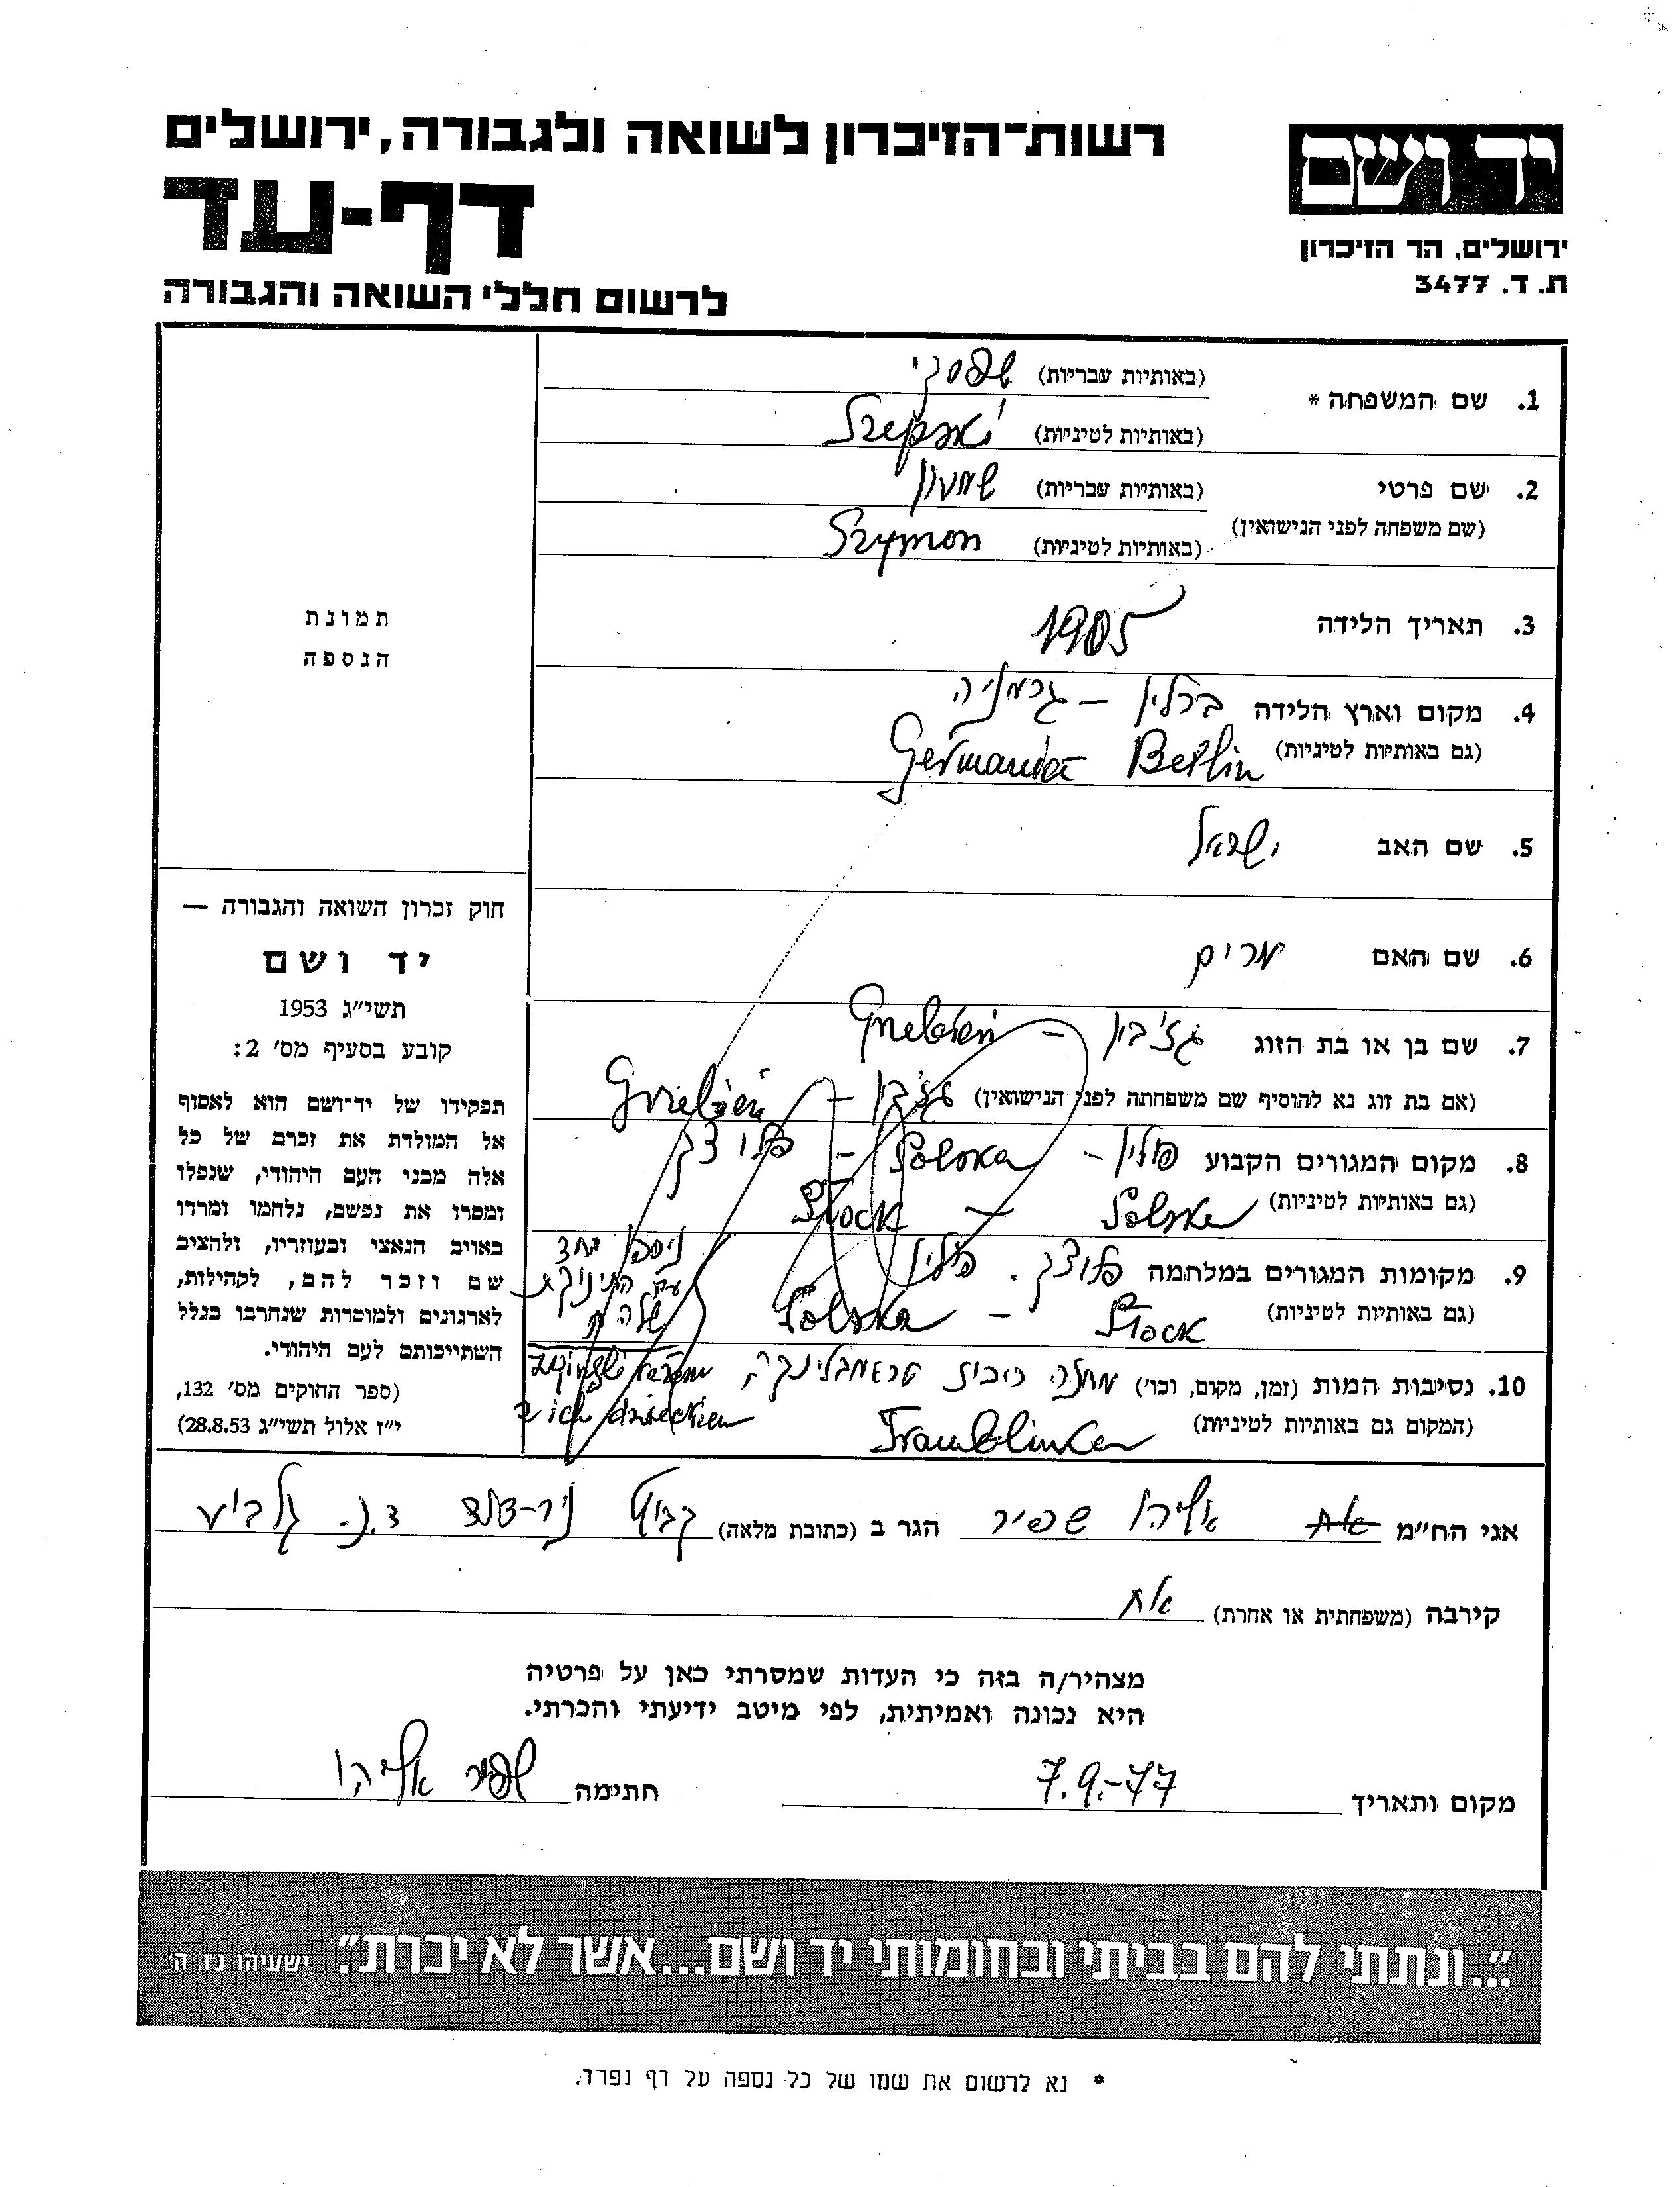 יד ושם
ירושלים, הר הזיכרון
ת. ד. 3477
רשות־הזיכרון לשואה ולגבורה, ירושלים
דף-עד
לרשום חללי השואה והגבורה
1. שם המשפחה * (באותיות עבריות)
(באותיות לטיניות)
2. שם פרטי (באותיות עבריות) שמעון
(שם משפחה לפני הנישואין) (באותיות לטיניות) Szymon
3. תאריך הלידה 1905
4. מקום וארץ הלידה ברלין – גרמניה
(גם באותיות לטיניות) Berlin Germania
5. שם האב ישראל
6. שם האם מרים
7. שם בן או בת הזוג
(אם בת זוג נא להוסיף שם משפחתה לפני הנישואין)
8. מקום המגורים הקבוע פולין – Polska – פלוצק
(גם באותיות לטיניות) Polska – Płock
9. מקומות המגורים במלחמה פלוצק. פולין
(גם באותיות לטיניות) Płock – Polska
ניספו יחד
עם התינוקת
שלהם
10. נסיבות המות (זמן, מקום, וכו') מחנה ריכוז טרעמבלינקה,
(המקום גם באותיות לטיניות) Tramblinka
razem
z ich dzieckiem
תמונת
הנספה
חוק זכרון השואה והגבורה —
יד ושם
תשי״ג 1953
קובע בסעיף מס׳ 2:
תפקידו של יד־ושם הוא לאסוף
אל המולדת את זכרם של כל
אלה מבני העם היהודי, שנפלו
ומסרו את נפשם, נלחמו ומרדו
באויב הנאצי ובעוזריו, ולהציב
שם וזכר להם, לקהילות,
לארגונים ולמוסדות שנחרבו בגלל
השתייכותם לעם היהודי.
(ספר החוקים מס׳ 132,
י״ז אלול תשי״ג 28.8.53)
אני הח״מ אח אליהו שפיר הגר ב (כתובת מלאה) קבוץ ניר-דוד ד.נ. גלבוע
קירבה (משפחתית או אחרת) אח
מצהיר/ה בזה כי העדות שמסרתי כאן על פרטיה
היא נכונה ואמיתית, לפי מיטב ידיעתי והכרתי.
מקום ותאריך 7.9.-77 חתימה שפיר אליהו
״...ונתתי להם בביתי ובחומותי יד ושם...אשר לא יכרת״. ישעיהו נ״ו, ה׳
* נא לרשום את שמו של כל נספה על דף נפרד.